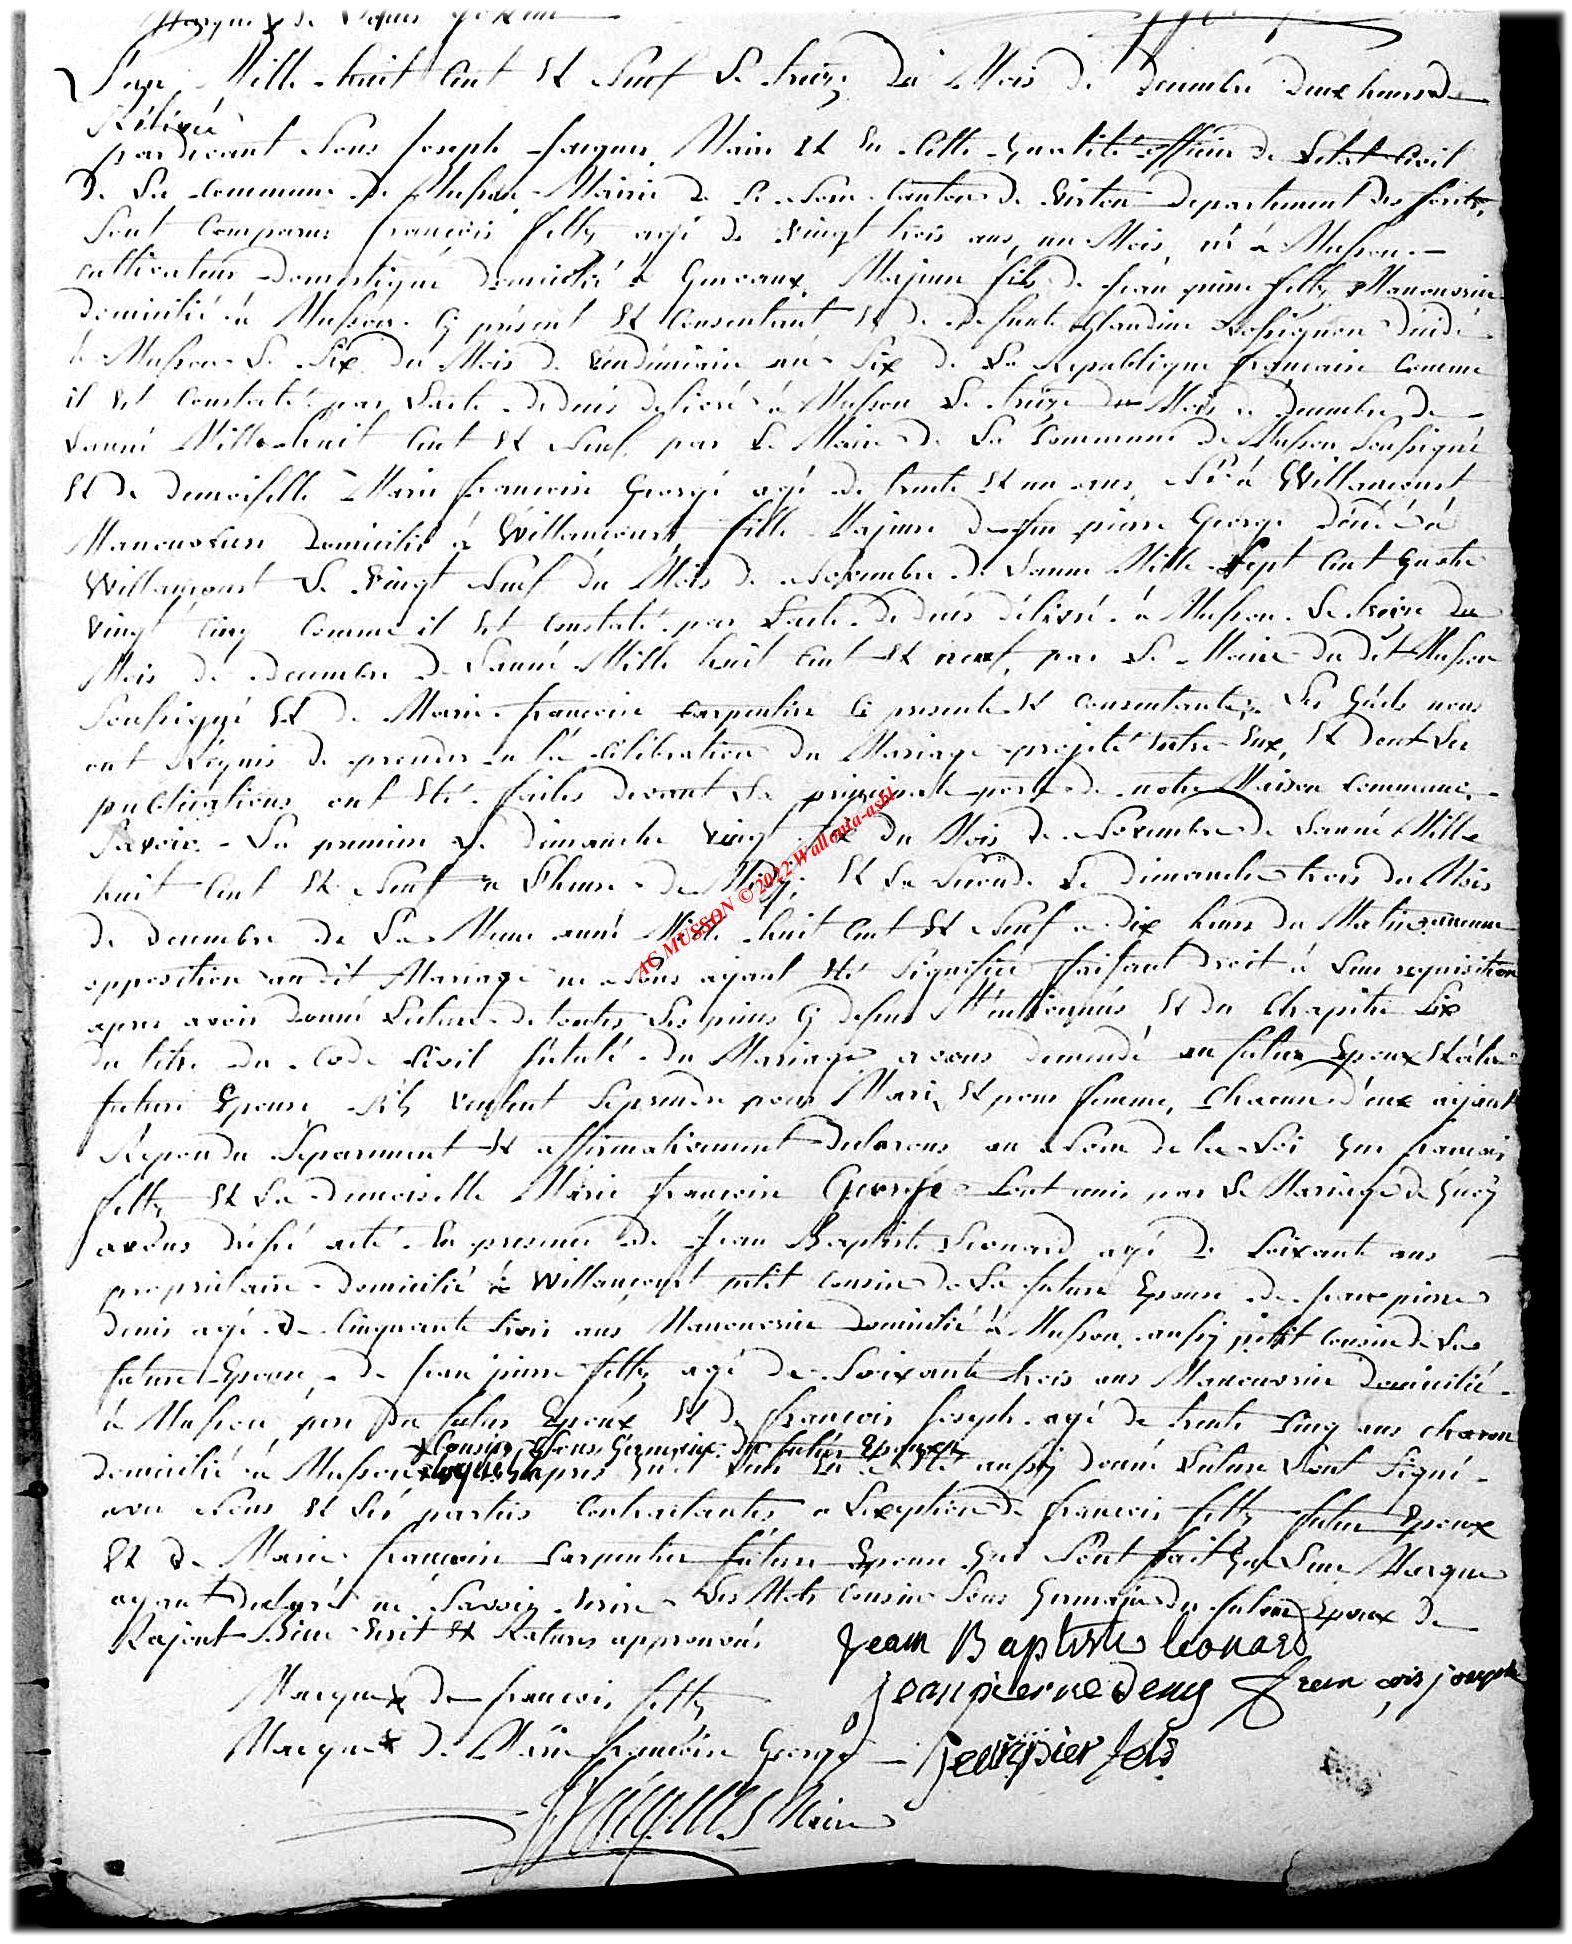 Marque x de
L'an Mille huit Cent Et Neuf Le treize Du Mois De Decembre Deux heures De
Rélévée
pardevant Nous Joseph Jacques Maire Et En Cette Qualité officier De L'etat Civil
De La Commune De Musson Mairie De Ce Nom Canton De Virton Departement Des forêts,
Sont Comparus françois felly agé De Vingt trois ans, un Mois, né à Musson.
cultivateur Domestique Domicilié à Gorcaux, Majeur fils De Jean pierre felly Manouvrier
Domicilié à Musson Cy présent Et Consentant Et De Defunte Claudine Rossignon Décidé
à Musson Le Six Du Mois De Vendémiaire an Six De La Republique française Comme
il Est Constaté par L'acte De Décès Delivré à Musson Le treize Du Mois De Decembre De
L'année Mille huit Cent Et Neuf par Le Maire De La Commune De Musson Soussigné
Et De Demoiselle Marie françoise George agé De trente Et un ans, Né à Willancourt
Manouvriere Domicilié à Willancourt fille Majeure De feu pierre George Décédé à
Willancourt Le Vingt Neuf Du Mois De Novembre De L'année Mille Sept Cent Quatre
Vingt Cinq Comme il Est Constaté par L'acte De Décès Délivré à Musson Le treize Du
Mois De Decembre De L'année Mille huit Cent Et neuf, par Le Maire Du Dit Musson
Soussigné Et De Marie françoise Carpentier Ci presente Et Consentante; Les Quels nous
ont Réquis De proceder a la Célébration Du Mariage projeté Entre Eux, Et Dont Les
publications ont Eté faites Devant La principale porte De notre Maison Commune,
Savoir. La premiere Le Dimanche Vingt Six Du Mois De Novembre De L'année Mille
huit Cent Et Neuf à L'heure De Midy; Et La Seconde Le Dimanche trois Du Mois
De Decembre De La Meme année Mille huit Cent Et Neuf a Dix heures Du Matin aucune
opposition audit Mariage ne Nous ayant Eté Signifiée faisant Droit à Leur requisition
apres avoir Donné Lecture De toutes Les pieces Cy Dessus Mentionnés Et Du Chapitre Six
Du titre Du Code Civil Intitulé Du Mariage avons Demandé au futur Epoux Et à la
future Epouse S'ils Veulent Se prendre pour Mari, Et pour femme, Chacun D'eux aijant
Repondu Separement Et affirmativement Declarons au Nom De la Loi Que françois
felly Et La Demoiselle Marie françoise George Sont unis par Le Mariage De Quoy
avons Dréssé acte En presence De Jean Baptiste Leonard agé De Soixante ans
propriétaire Domicilié à Willancourt petit Cousin De La future Epouse De Jean pierre
Denis agé De Cinquante trois ans Manouvrier Domicilié à Musson, aussy petit Cousin De La
future Epouse, De Jean pierre felly agé De Soixante trois ans Manouvrier Domicilié
à Musson, pere Du futur Epoux Et De françois Joseph agé De trente Cinq ans charon
x Cousin Sous Germain Du futur Epoux
domicilié à Musson x Lesquels apres Qu'il Leur En a Eté aussy Donné Lecture L'ont Signé
avec Nous Et Les parties Contractantes a L'exeption De françois felly futur Epoux
Et De Marie françoise Carpentier future Epouse Qui L'ont fait Que Leur Marque
ayant Declaré ne Savoir Ecrire Les Mots Cousin Sous Germain Du futur Epoux De
Rajout Bien Ecrit Et Ratures approuvés
Jean Baptiste Leonard
Marque x De françois felly
Jean pierre Denis françois joseph
Marque x De Marie françoise George
Jean pier felÿ
Jacques Maire
AC MUSSON © 2022 Wallonia-asbl